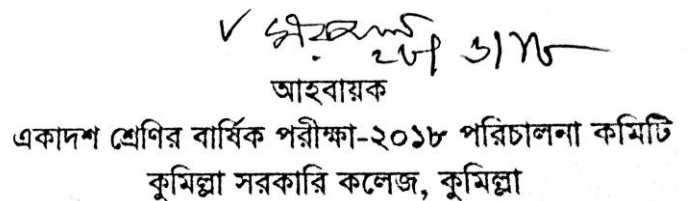 আহবায়ক
একাদশ শ্রেণির বার্ষিক পরীক্ষা-২০১৮ পরিচালনা কমিটি
কুমিল্লা সরকারি কলেজ, কুমিল্লা